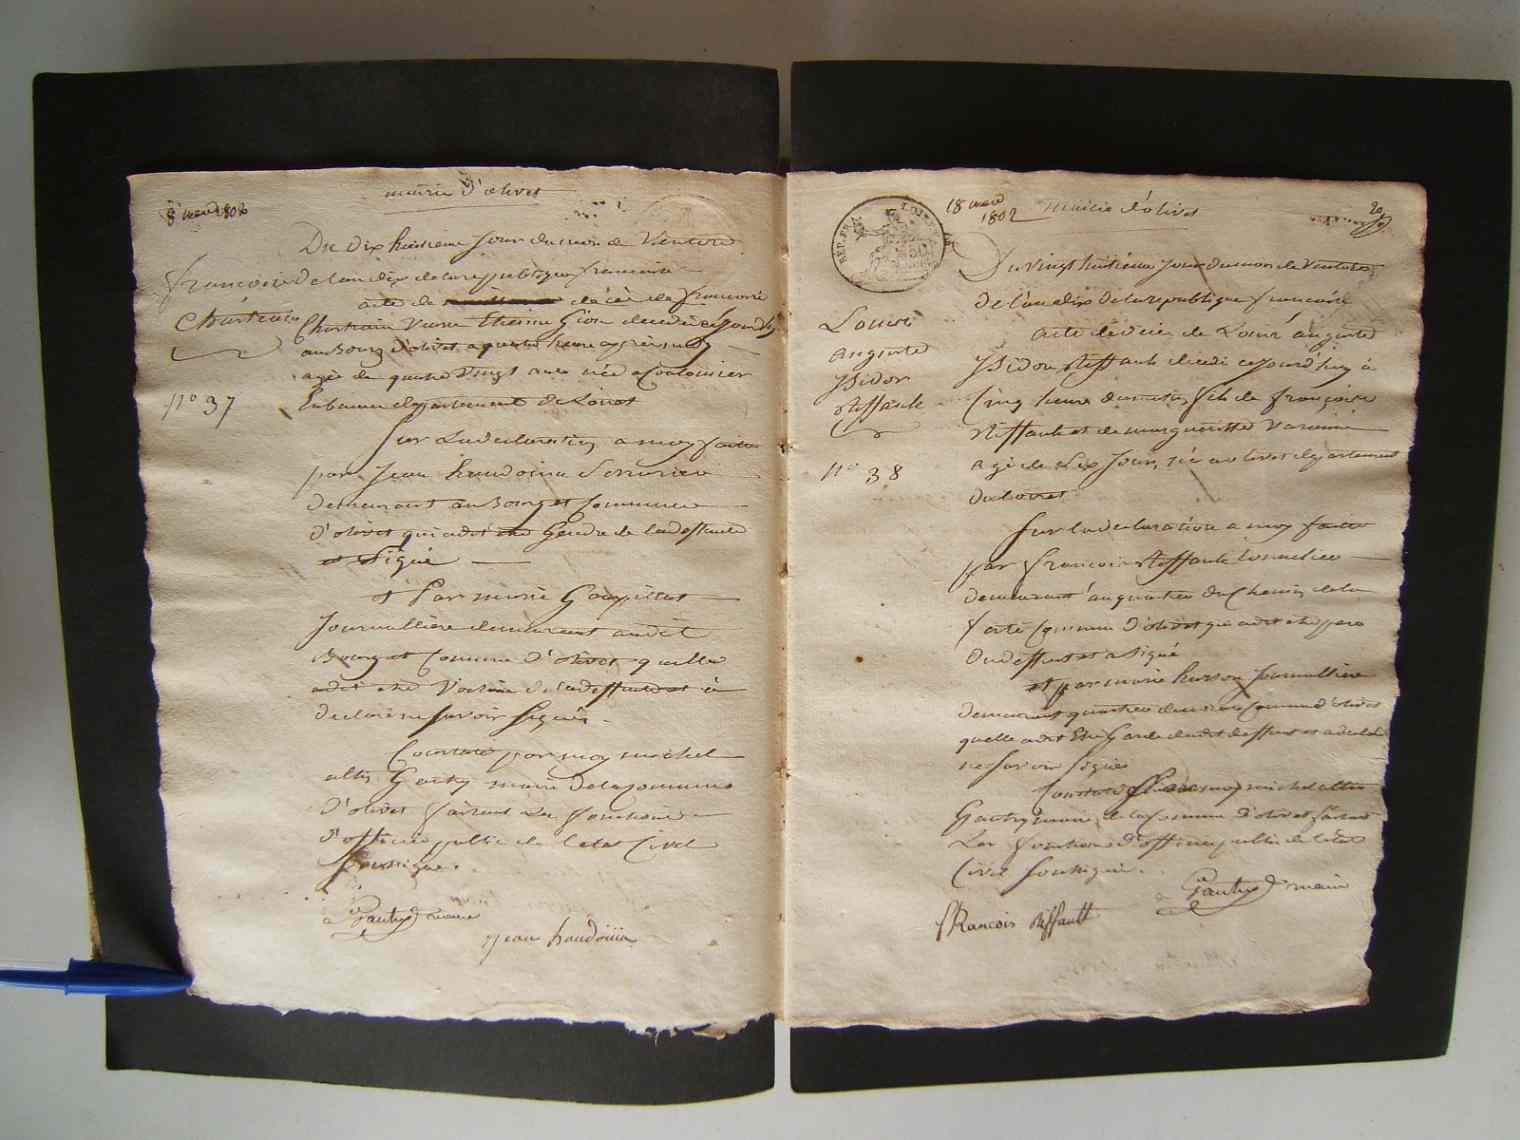 mairie d'olivet
8 mars 1802
Du dix huitieme jour du mois de Ventose
de l'an dix de la republique francaise
acte de décè de francoise
Chartrain Veuve Etienne decedé ce jourd'huy
au Bourg d'olivet a quatre heure apres midy
agée de quatre Vingt ans née a
departement du Loiret
francoise
Chartrain
n° 37
Sur La declaration a moy faitte
par Jean haudoüin Serrurier
demeurant au Bourg et Commune
d'olivet qui a dit etre Gendre de la deffunte
et Signé
et Par marie Goupillet
Journalliere demeurant audit
Bourg et Commune d'olivet quelle
a dit etre Voisine de la deffunte et à
declaré ne Savoir Signér
Constaté par moy michel
Gautry maire de la Commune
d'olivet faisant Les fonctions
d'officier public de l'etat Civil
Soussigné.
Gautry maire
Jean haudoüin
REP. FRA.
18 mars
1802
mairie d'olivet
20
Du Vingt huitieme jour du mois de Ventose
de l'an dix de la republique francaise
acte de décè de Louis auguste
Ysidor Riffault decedé ce jourd'huy à
Cinq heure du matin fils de françois
Riffault et de margueritte Varenne
agé de dix Jour, né a olivet departement
du Loiret
Louis
auguste
Ysidor
Riffault
n° 38
Sur la declaration a moy faitte
par francois Riffault tonnelier
demeurant au quartier du Chemin de la
ferté Commune d'olivet qui a dit etre pere
du deffunt et a Signé
et par marie husson Journalliere
demeurant quartier Commune d'olivet
quelle a dit Etre Garde dudit deffunt et a declaré
ne Savoir Signér
Constaté par moy michel
Gautry maire de la Commune d'olivet faisant
Les fonctions d'officier public de l'etat
Civil Soussigné.
Gautry maire
fRancois Riffault